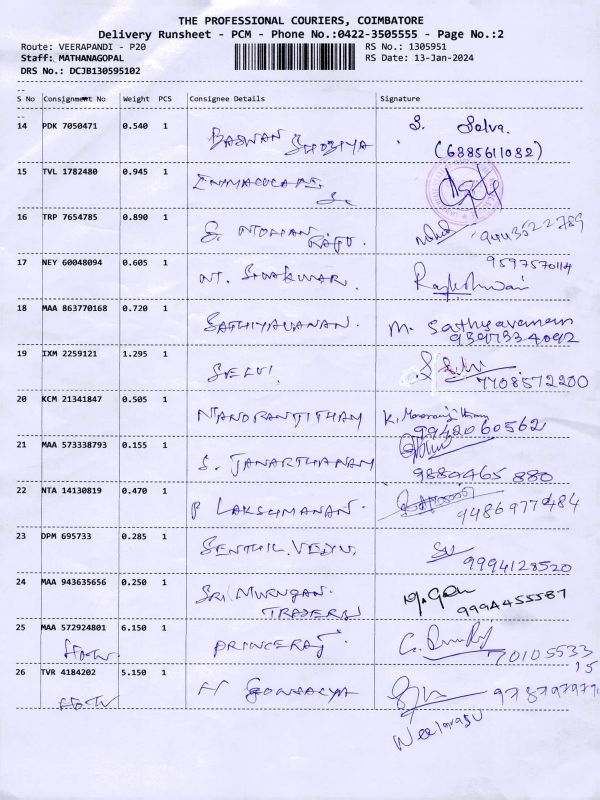 THE PROFESSIONAL COURIERS, COIMBATORE
Delivery Runsheet - PCM - Phone No.:0422-3505555 - Page No.:2
Route: VEERAPANDI - P20 RS No.: 1305951
Staff: MATHANAGOPAL RS Date: 13-Jan-2024
DRS No.: DCJB130595102
S No Consignment No Weight PCS Consignee Details Signature
14 PDK 7050471 0.540 1 S. Selva.
(6385611032)
15 TVL 1782480 0.945 1
16 TRP 7654785 0.890 1 S. MOHAN RAJU. 9443522789
17 NEY 60048094 0.605 1 NT. SIVAKUMAR. 9597570114
Rajeshwari
18 MAA 863770168 0.720 1 SATHIYAVANAN. M. Sathyavanan
19 IXM 2259121 1.295 1 SELVI. 7708572200
20 KCM 21341847 0.505 1 MANORANJITHAM K. Manoranjitham
9942060562
21 MAA 573338793 0.155 1 S. JANARTHANAM
9884465 880
22 NTA 14130819 0.470 1 P LAKSHMANAN.
9486977484
23 DPM 695733 0.285 1 SENTHIL.VELU.
9994128520
24 MAA 943635656 0.250 1 SRI MURUGAN.
TRADERS 9994455587
25 MAA 572924801 6.150 1 PRINCERAJ
7010553315
26 TVR 4184202 5.150 1